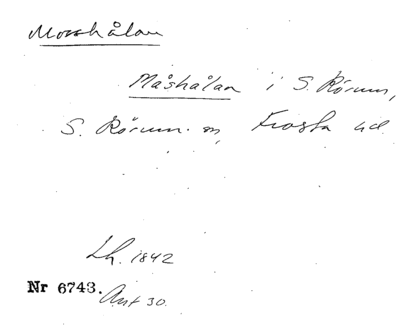 Morshålan
Måshålan i S. Rörum,
S. Rörum. sn, Frosta hd
Lh. 1842
Nr 6743. Ant 30.